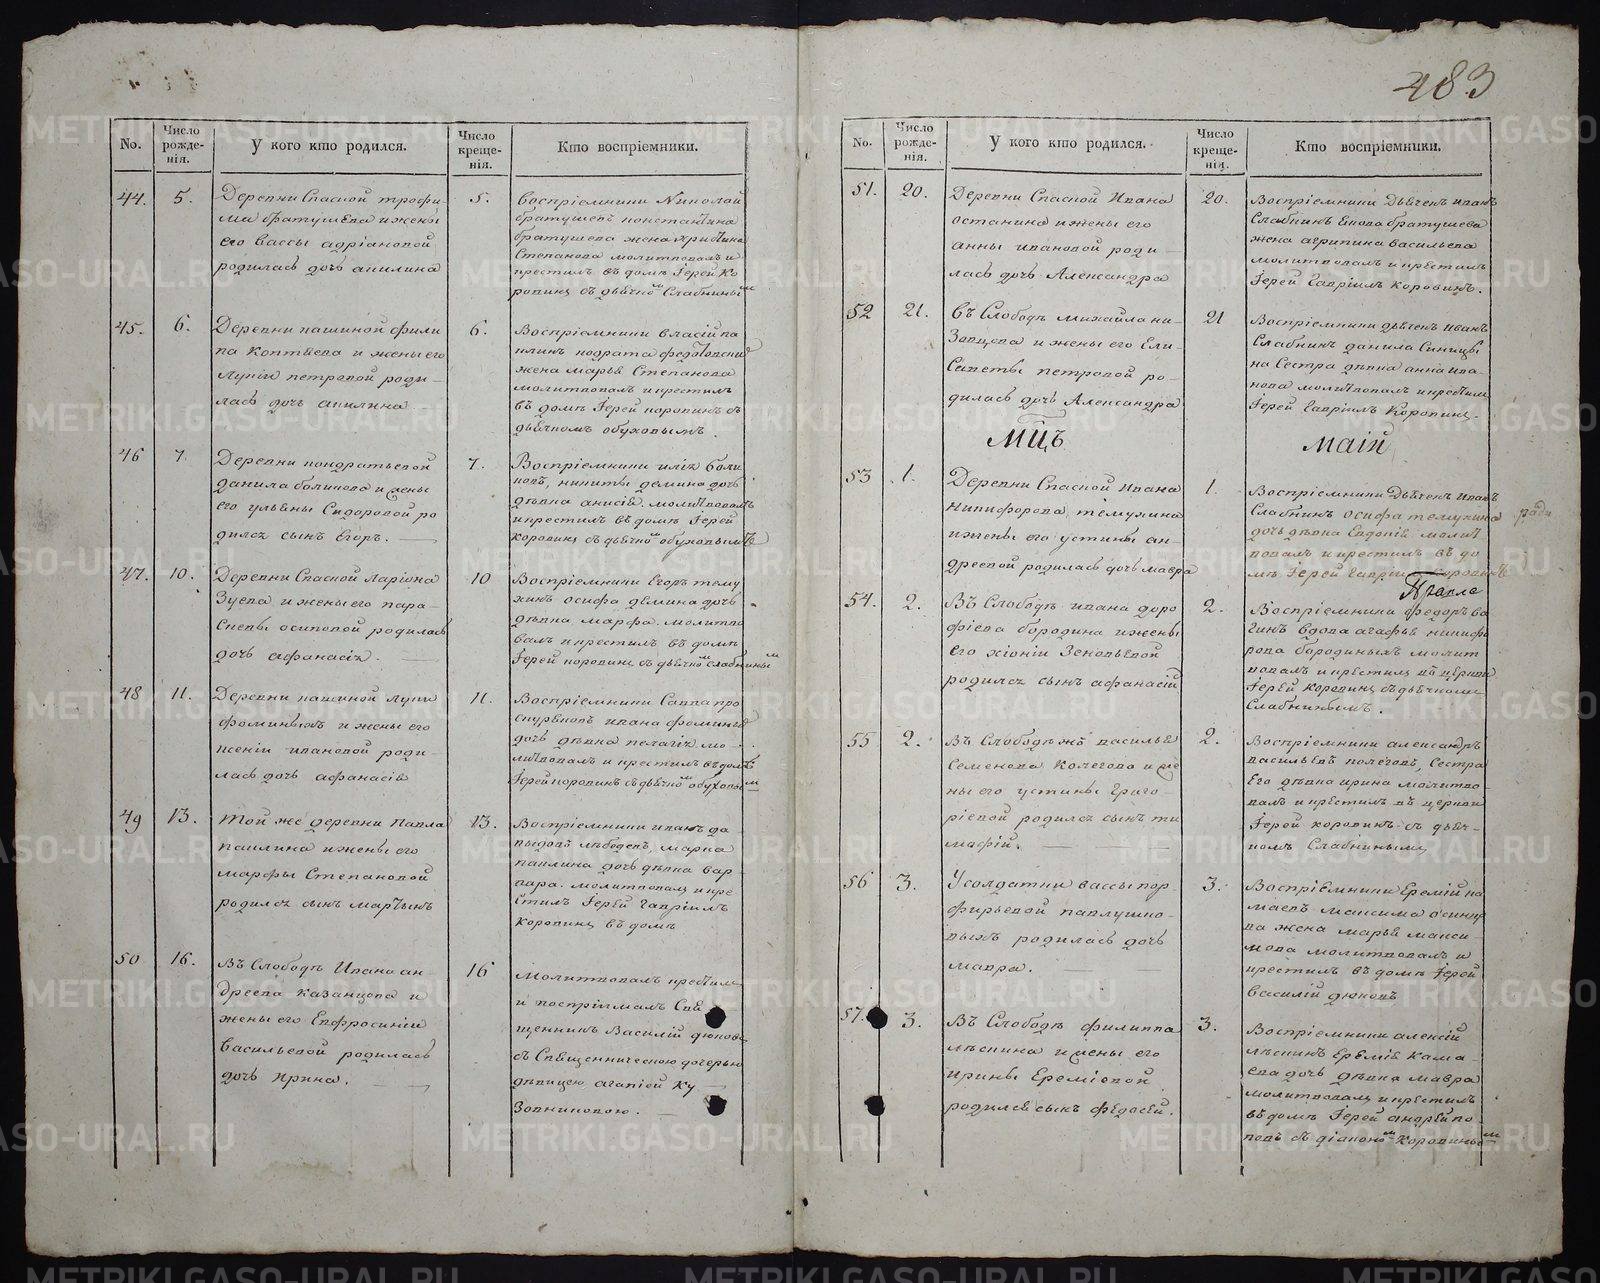 483
No.
Число рожде-нія.
У кого кто родился.
Число креще-нія.
Кто воспріемники.
44. 5.
Деревни Спасной трофи
ма братушева и жены
его вассы адріановой
родилась дочь
5.
Воспріемники Николай
братушевъ константина
братушева жена
Степанова молитвовалъ и
крестилъ въ домѣ Іерей Ко
ровинъ съ дьячкомъ Слабнинымъ
45. 6.
Деревни пашиной фили
па коптѣева и жены его
петровой роди-
лась дочь акилина
6.
Воспріемники власій па
кондрата
жена марья Степанова
молитвовалъ и крестилъ
въ домѣ Іерей коровинъ съ
дьячкомъ обуховымъ.
46 7.
Деревни кондратьевой
данила и жены
его ульяны Сидоровой ро
дился сынъ Егоръ.
7.
Воспріемники илія
никиты демина дочь
дѣвка анисія молитвовалъ
и крестилъ въ домѣ Іерей
коровинъ съ дьячкомъ обуховымъ
47. 10.
Деревни Спасной Ларіона
Зуева и жены его пара-
скевы осиповой родилась
дочь афанасія.
10
Воспріемники Егоръ тему
хинъ осифа демина дочь
дѣвка марфа. молитво
валъ и крестилъ въ домѣ
Іерей коровинъ съ дьячкомъ Слабнинымъ
48 11.
Деревни пашиной
фоминыхъ и жены его
ксеніи ивановой роди-
лась дочь афанасія
11.
Воспріемники Савва про
скуряковъ ивана фоминых
дочь дѣвка пелагія мо-
литвовалъ и крестилъ въ домѣ
Іерей коровинъ съ дьячкомъ обуховым
49 13.
Той же деревни павла
пашкина и жены его
марфы Степановой
родился сынъ
13.
Воспріемники иванъ да
выдовъ лѣбедев, марка
дочь дѣвка вар-
вара. молитвовалъ и кре
стилъ Іерей Гавріилъ
Коровинъ въ домѣ
50 16.
Въ Слободѣ Ивана ан-
дреева казанцова и
жены его Евфросиніи
Васильевой родилась
дочь Ирина.
16
Молитвовалъ крестилъ
и воспріималъ Свя
щенникъ Василій дюковъ
съ Священническою дочерью
дѣвицею агапіей Ку
Зовниковою.
No.
Число рожде-нія.
У кого кто родился.
Число креще-нія.
Кто воспріемники.
51. 20.
Деревни Спасной Ивана
останина и жены его
анны ивановой роди-
лась дочь Александра
20.
Воспріемники Дьячекъ иванъ
Слабнинъ якова братушева
жена агрипина васильева
молитвовалъ и крестилъ
Іерей Гавріилъ Коровинъ.
52 21.
Въ Слободѣ михайла ки-
Зовцева и жены его Ели-
саветы петровой ро-
дилась дочь Александра
21
Воспріемники дьячекъ иванъ
Слабнинъ данила Синицы
на Сестра дѣвка анна ива-
нова молитвовалъ и крестилъ
Іерей Гавріилъ Коровинъ.
Мцъ Маій
53 1.
Деревни Спасной Ивана
Никифорова темухина
и жены его устиньи ан-
дреевой родилась дочь мавра
1.
Воспріемники Дьячекъ иванъ
Слабнинъ осифа темухина
дочь дѣвка Евдокія молит
вовалъ и крестилъ въ до
мѣ Іерей Гавріилъ Коровинъ
54. 2.
Въ Слободѣ ивана доро
фѣева бородина и жены
его хіоніи Зеновьевой
родился сынъ афанасій
2.
Воспріемники федоръ ва
гинъ вдова агафья никифо
рова бородиныхъ молит
вовалъ и крестилъ въ церкви
Іерей Коровинъ съ дьячкомъ
Слабнинымъ.
55 2.
Въ Слободѣ жъ василья
Семенова Колегова и же
ны его устиньи Григо-
ріевой родился сынъ ти
мофій.
2.
Воспріемники александръ
васильевъ колеговъ, Сестра
Его дѣвка ирина молитво-
валъ и крестилъ въ церкви
Іерей коровинъ съ дьяч-
комъ Слабнинымъ
56 3.
У солдатки вассы пор-
фирьевой павлушко-
выхъ родилась дочь
мавра.
3.
Воспріемники Еремій ка
маевъ максима
ва жена марья макси-
мова молитвовалъ и
крестилъ въ домѣ Іерей
Василій дюковъ
57. 3.
Въ Слободѣ филиппа
лѣскина и жены его
ирины Ереміевой
родился сынъ федосей.
3.
Воспріемники алексій
лѣскинъ Еремія кама-
ева дочь дѣвка мавра
молитвовалъ и крестилъ
въ домѣ Іерей андрей по
повъ съ діакономъ Коровинымъ
METRIKI.GASO-URAL.RU